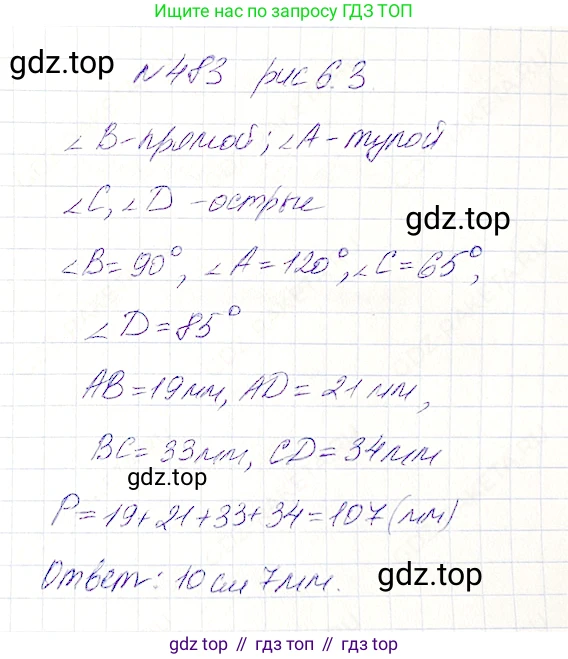 Ищите нас по запросу ГДЗ ТОП
gdz.top
№483 рис 6.3
∠B-прямой; ∠A-тупой
∠C, ∠D -острые
gdz.top
∠B=90°, ∠A=120°, ∠C=65°,
∠D=85°
AB=19мм, AD=21мм,
BC=33мм, CD=34мм
gdz.top
P=19+21+33+34=107(мм)
Ответ: 10см 7мм.
gdz.top
gdz.top // гдз топ // гдз.топ